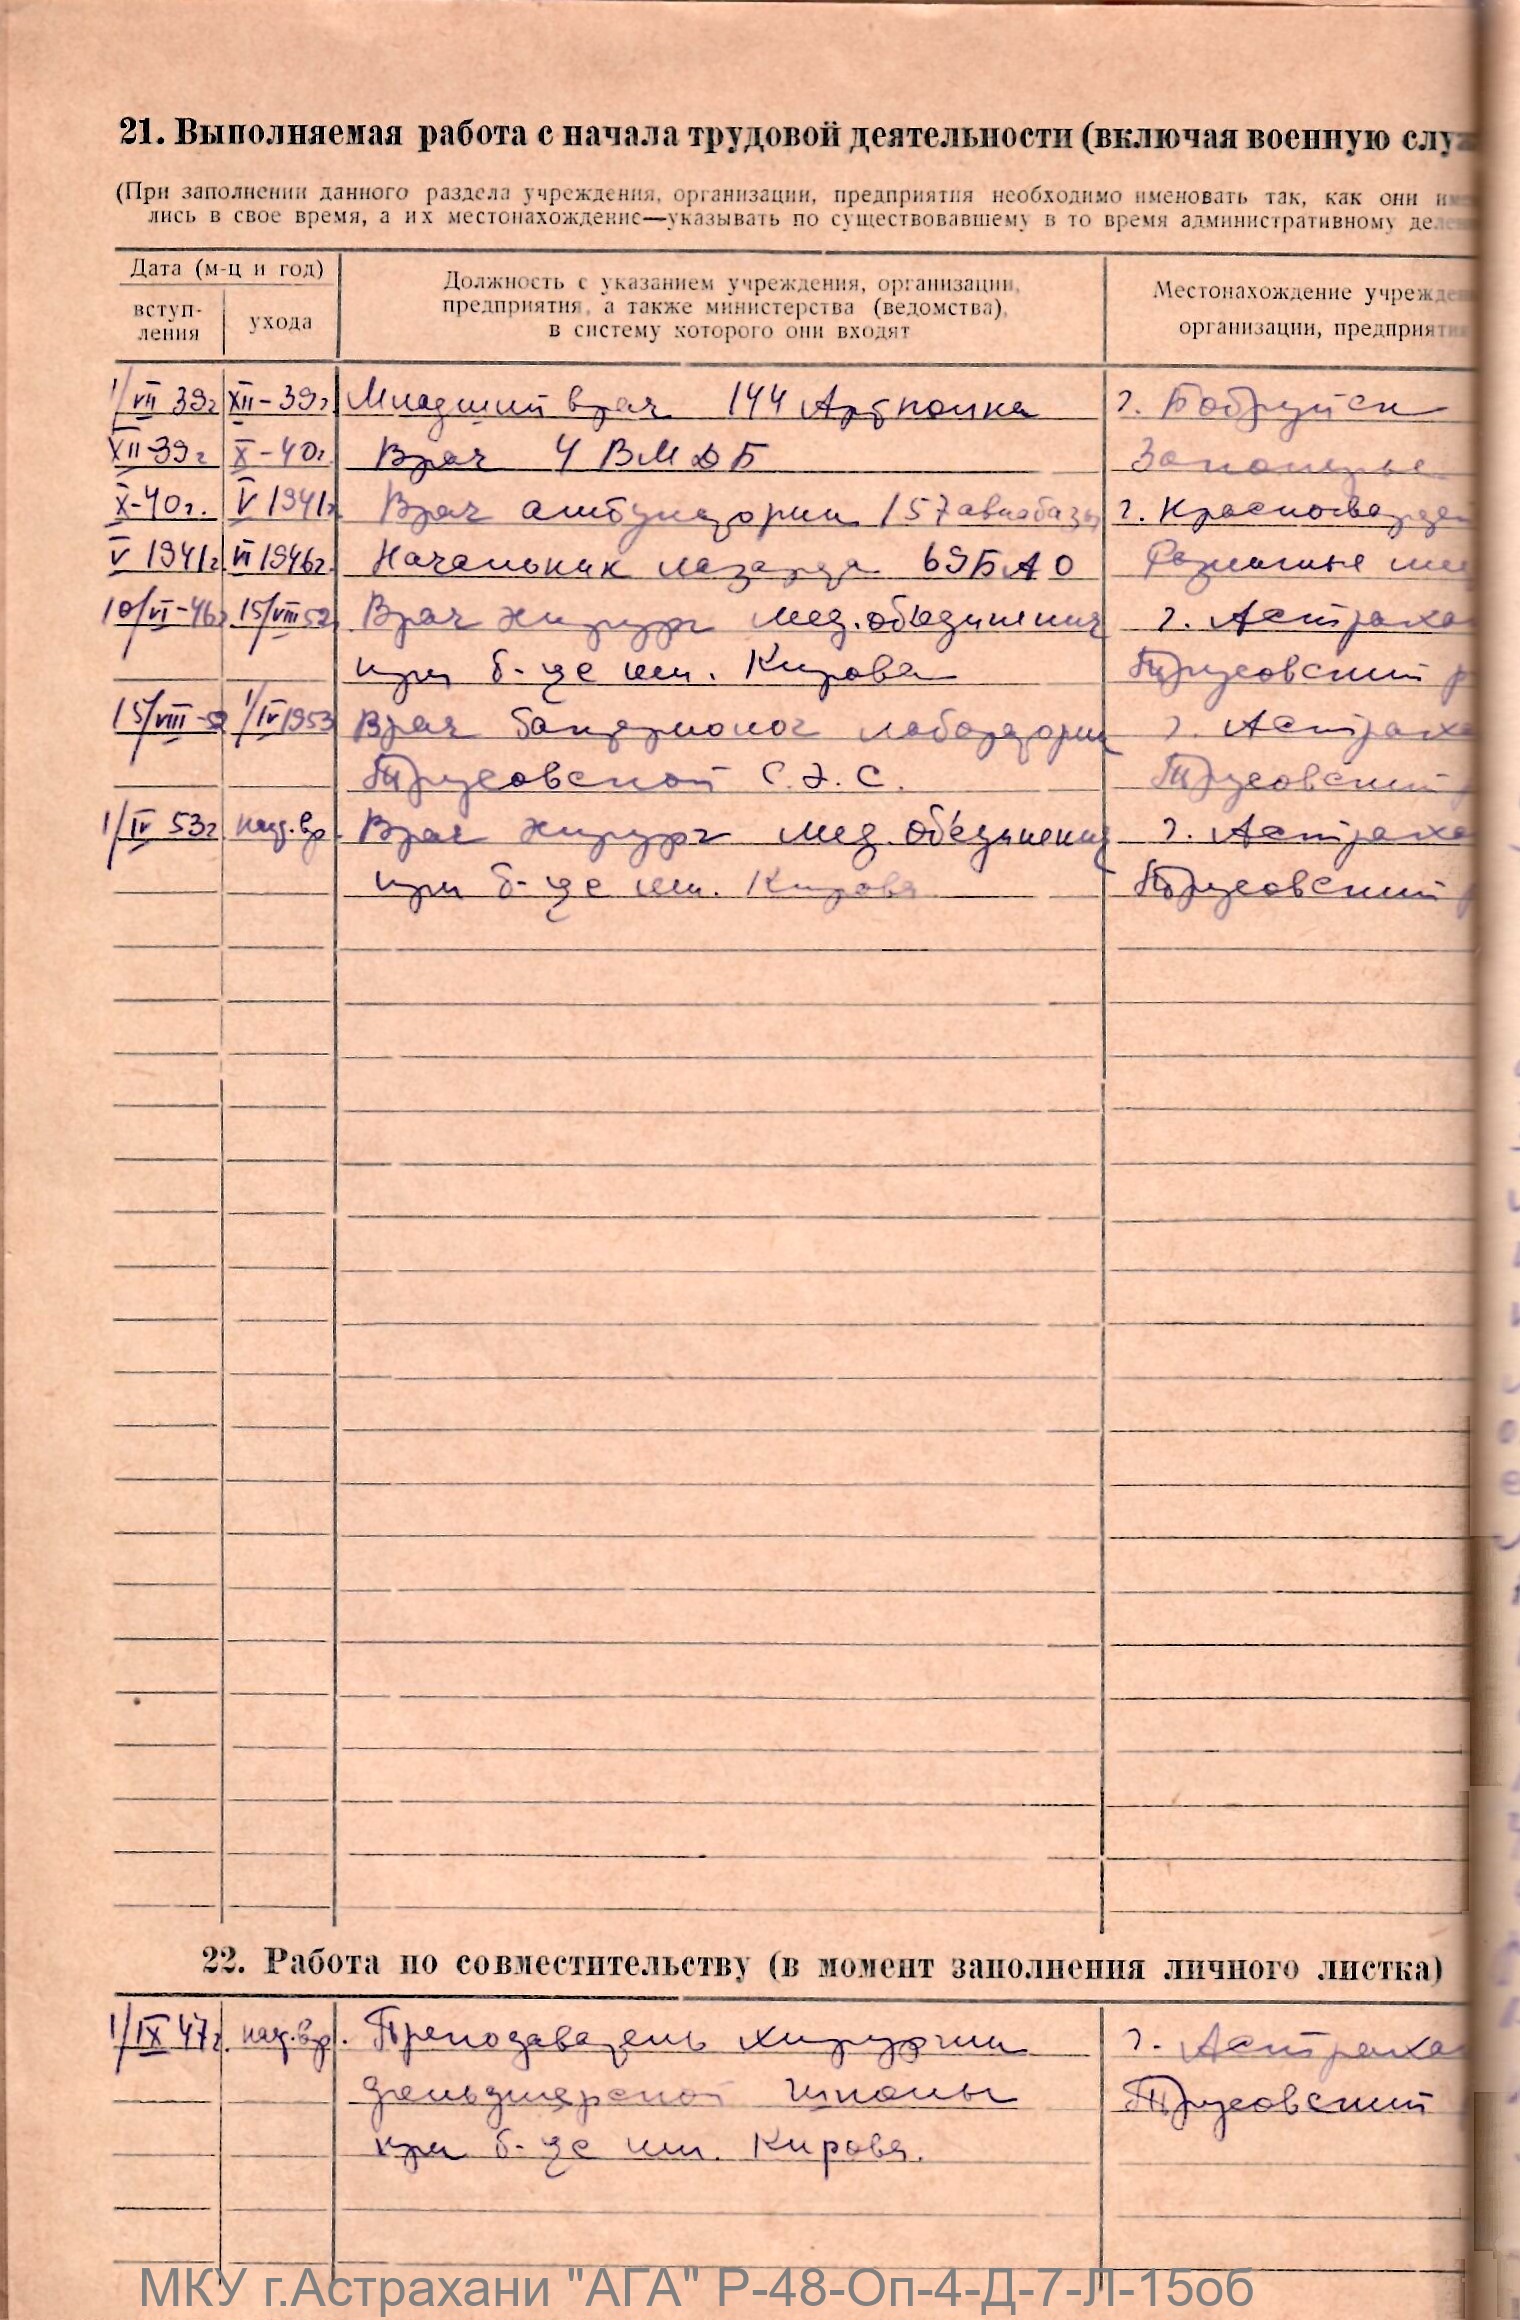 21. Выполняемая работа с начала трудовой деятельности (включая военную служ
(При заполнении данного раздела учреждения, организации, предприятия необходимо именовать так, как они име
лись в свое время, а их местонахождение—указывать по существовавшему в то время административному делен
Дата (м-ц и год)
вступ-
ления
ухода
Должность с указанием учреждения, организации,
предприятия, а также министерства (ведомства),
в систему которого они входят
Местонахождение учрежден
организации, предприяти
1/VII 39г XII-39г. Младший врач 144 Артполка г. Бобруйск
XII-39г X-40г. Врач 4 ВМДБ Заполярье
X-40г. V 1941г. Врач амбулатории 157 авиабазы г. Красногварде
V 1941г. VI 1946г. Начальник лазарета 69 БАО Различные
10/VI-46г 15/VIII 52г Врач хирург мед. объединения г. Астраха
при б-це им. Кирова Трусовский р
15/VIII-52 1/IV 1953 Врач бактериолог лаборатории г. Астраха
Трусовской С.Э.С. Трусовский р
1/IV 53г наст. вр. Врач хирург мед. объединения г. Астраха
при б-це им. Кирова Трусовский р
22. Работа по совместительству (в момент заполнения личного листка)
1/IX 47г. наст. вр. Преподаватель хирургии г. Астраха
фельдшерской школы Трусовский
при б-це им. Кирова.
МКУ г.Астрахани "АГА" Р-48-Оп-4-Д-7-Л-15об